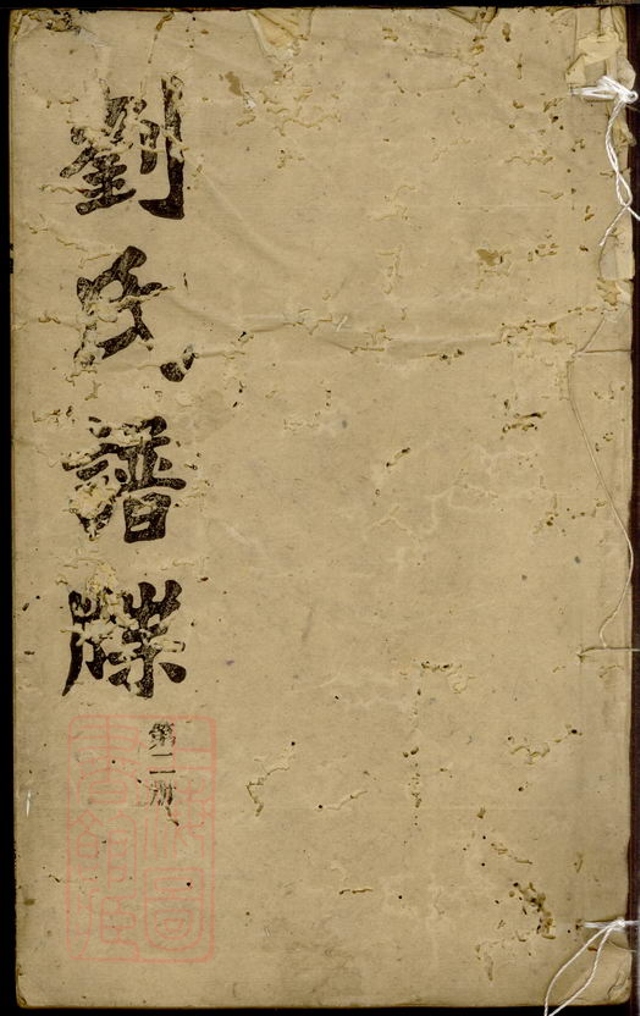 劉氏譜牒
第二册